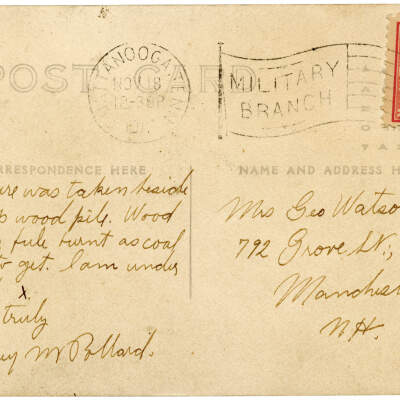 POST CARD
CHATTANOOGA, TENN
NOV 18
12-30P
MILITARY
BRANCH
RRESPONDENCE HERE
NAME AND ADDRESS H
ure was taken beside
wood pile. Wood
fule burnt as coal
to get. I am under
x.
truly
M Pollard.
Mrs Geo Watso
792 Grove St.,
Manches
N.H.